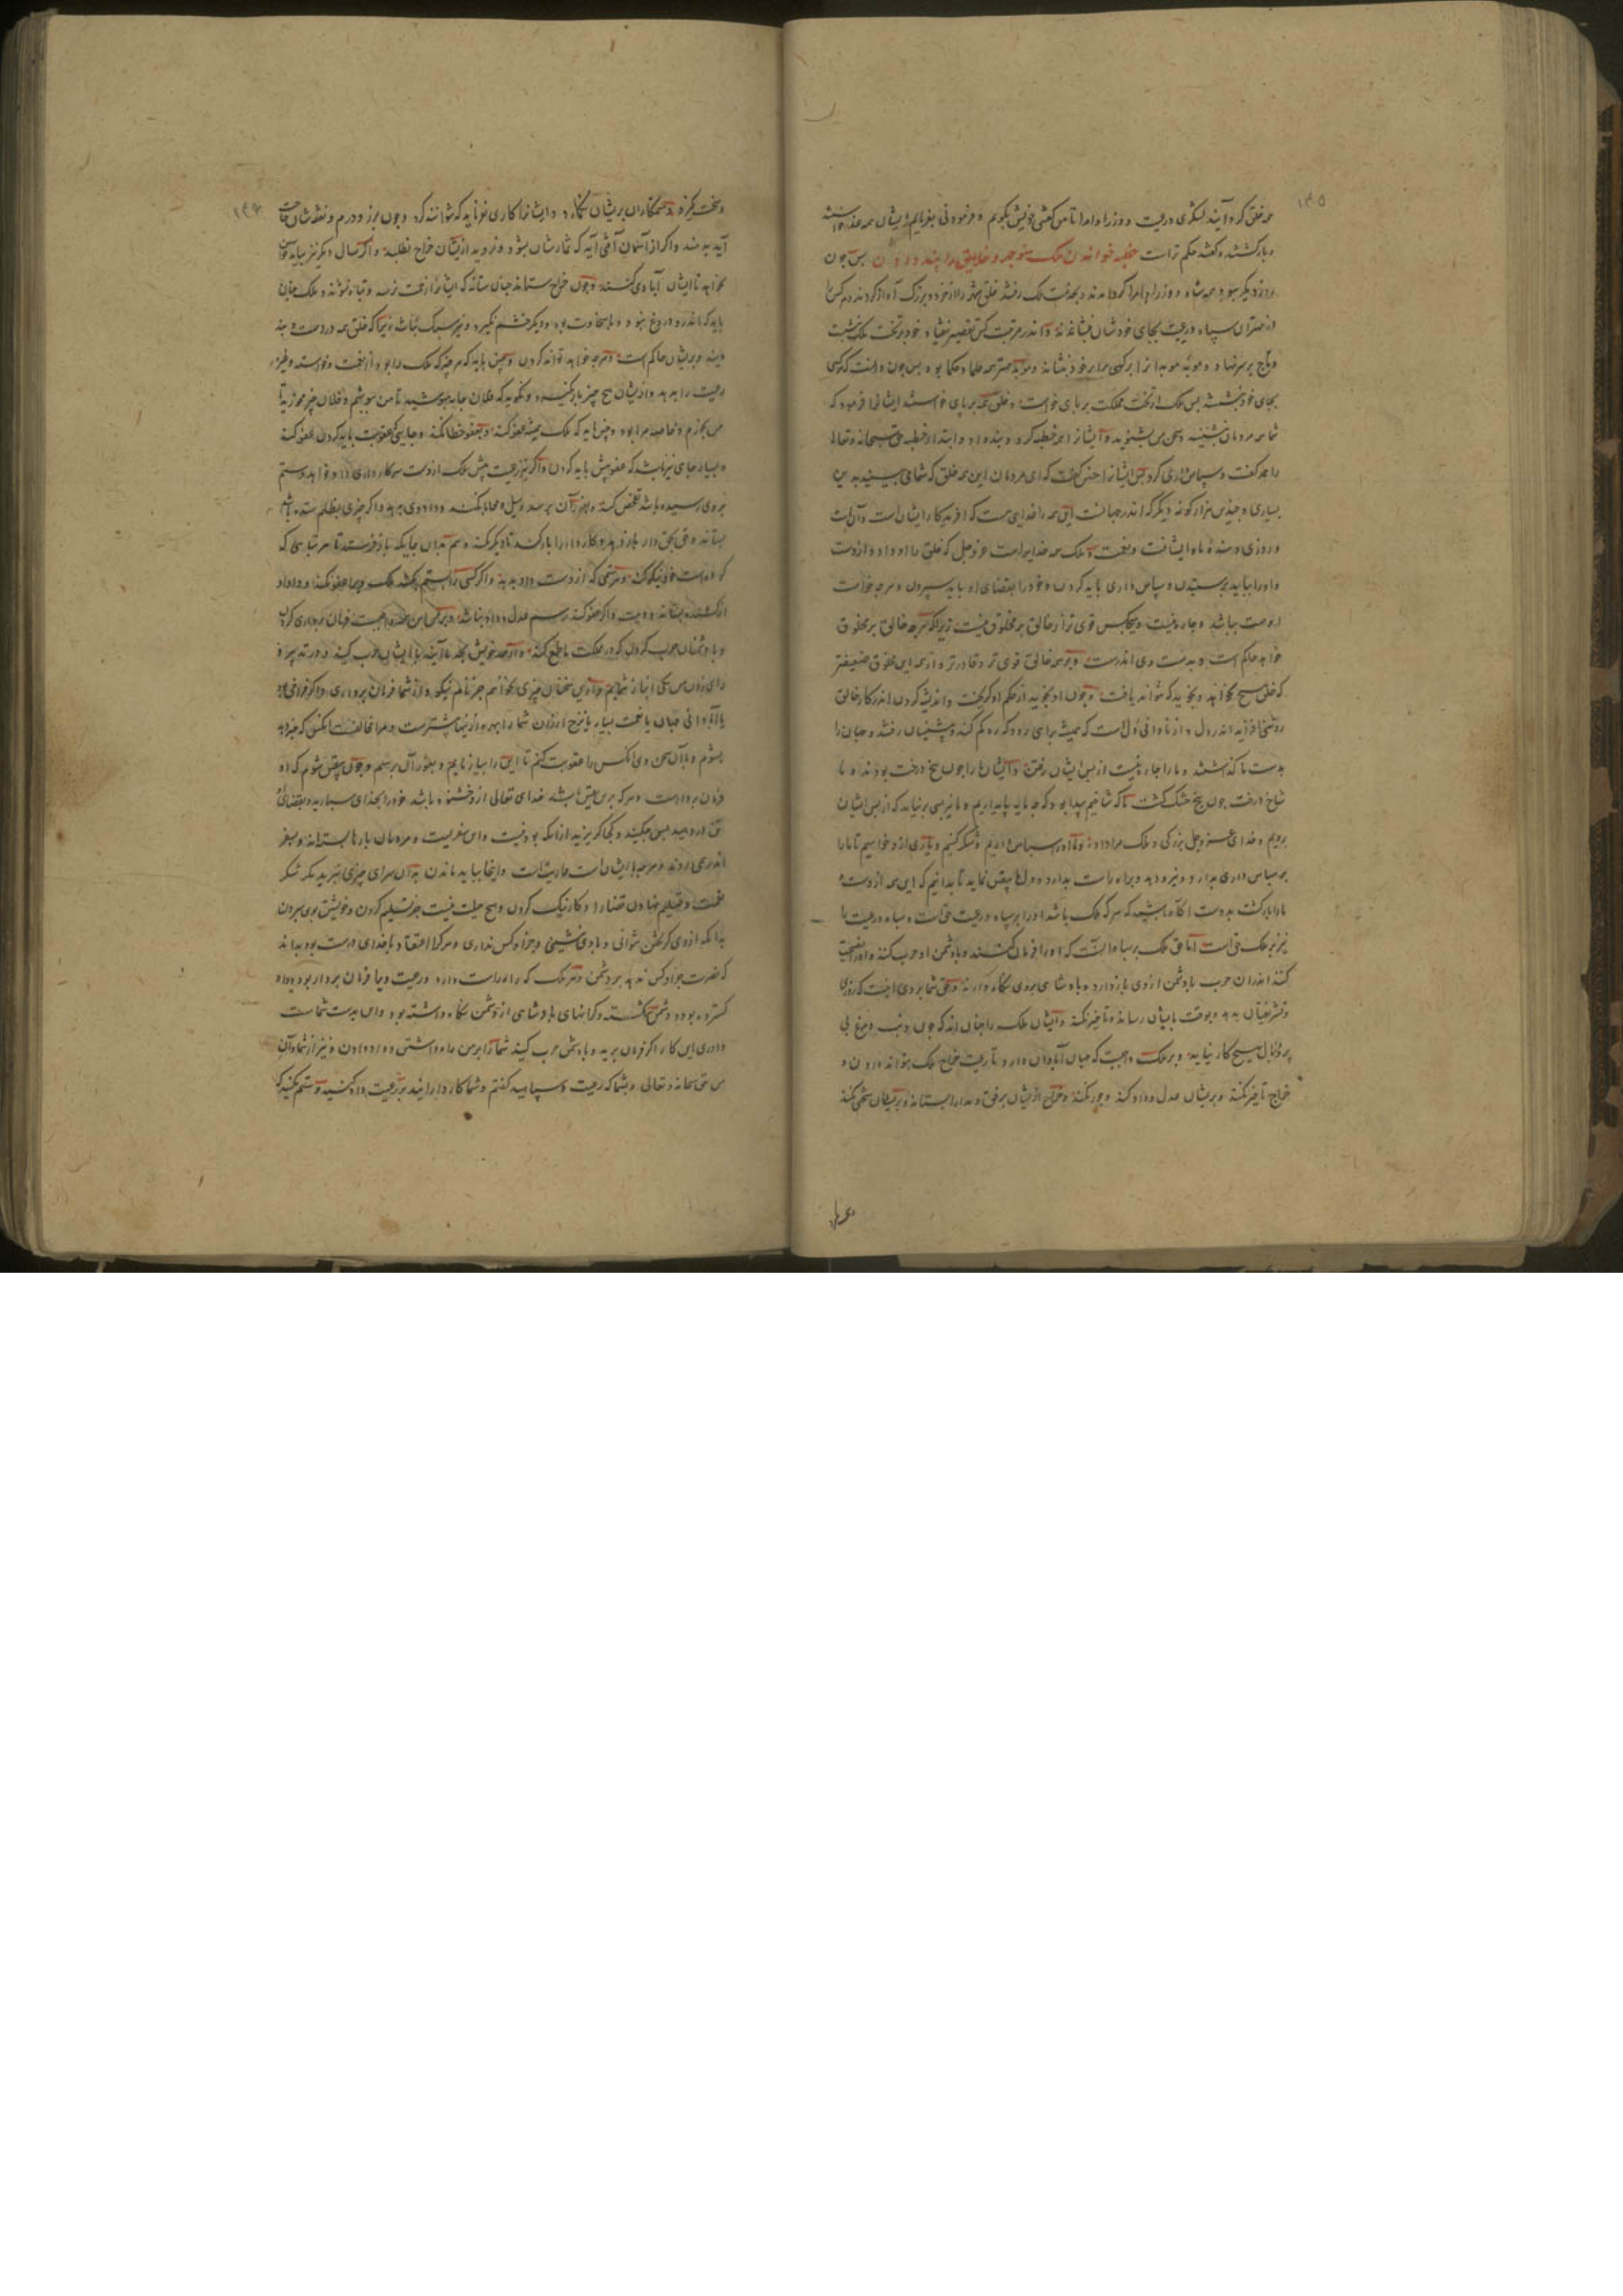 ۱۴۵
همه خلق گرد آیند لشکری و رعیت و وزرا و امرا تا من سخن خویش بگویم و فرمودنی بفرمایم ایشان همه
و بازگشتند و گفتند حکم تراست خطبه خواندن ملک منوچهر و خلایق را پند دادن پس چون
روز دیگر ببود همه سپاه و وزرا و امرا گرد آمدند و بخدمت ملک رفتند خلق شهر را از خرد و بزرگ آواز کردند و هر کس را
از مهتران سپاه و رعیت بجای خودشان بنشاندند و اندر مرتبت کس تقصیر نیفتاد و خود بر تخت ملک نشست
و تاج بر سر نهاد و موبد موبدانرا بر کرسی برابر خود بنشاند و موبد مهتر همه علما و حکما بود پس چون دانست که هر کسی
بجای خود نشسته پس ملک از تخت مملکت بر پای خواست و خلق همه بر پای خواستند ایشانرا فرمود که
شما مردمان بنشینید و سخن من بشنوید و ایشانرا همه خطبه کرد و پند داد و ابتدا از خطبه حق سبحانه و تعالی
را حمد گفت و سپاس داری کرد پس ایشانرا چنین گفت که ای مردمان این همه خلق که شما می بینید بدین
بسیاری و چندین هزار گونه دیگر که اندر جهانست این همه را خدایی هست که آفریدگار ایشان است و آن است
و روزی دهنده ما و ایشانست و نعمت و ملک همه خدایراست عز و جل که خلق را او داد و از اوست
و او را بباید پرستیدن و سپاس داری باید کردن و خود را بقضای او بباید سپردن و هر چه خواست
اوست بباشد و چاره نیست و هیچکس قوی تر از خالق بر مخلوق نیست زیرا که هر چه خالق بر مخلوق
خواهد حاکم است و بدست وی اندرست و بر همه خالق قوی تر و قادرتر و از همه این مخلوق ضعیفتر
که خلق هیچ نخواهد و نجوید که نتواند یافت و چون او بجوید از حکم او نگریخت و اندیشه کردن اندر کار خالق
روشنی افزاید اندر دل و از نادانی دل است که همیشه براهی رود که ره گم کند و پیشینیان رفتند و جهان را
بدست ما گذاشتند و ما را چاره نیست از پس ایشان رفتن و ایشان ما را چون بیخ درخت بودند و ما
شاخ درخت چون بیخ خشک گشت تا که شاخ هم پیدا بود که چه مایه پایدار بود و ما نیز بسی برنیاید که از پس ایشان
برویم و خدای عز و جل بزرگی و ملک مرا داد و ما او را سپاس داریم و شکر کنیم و یاری از او خواهیم تا ما را
بر سپاس داری بدارد و نیرو دهد و براه راست بدارد و دلها بیقین نماید تا بدانیم که این همه از اوست و
ما را بازگشت بدوست آگاه باشید که هر که ملک باشد او را بر سپاه و رعیت حق است و سپاه و رعیت را
نیز بر ملک حق است اما حق ملک بر سپاه آنست که او را فرمان کنند و با دشمن او حرب کنند و او را نصیحت
کنند اندران حرب با دشمن از وی باز دارند و پادشاهی بر وی نگاه دارند و حق شما بر وی آنست که روزی
و تشریفتان بدهد و بوقت بایشان رساند و تاخیر نکند و ایشان ملک را چنان اند که چون پر و مرغ بی
پر و بال هیچ کار نیاید و بر ملک واجبست که جهان آبادان دارد تا رعیت خراج ملک بتواند دادن و
خراج تاخیر نکند و بر ایشان عدل و داد کند و جور نکند و خراج از ایشان برفق و مدارا بستاند و بر ایشان سختی نکند
۱۴۶
و سخت نگیرد و ستمکاران بر ایشان نگمارد و ایشانرا کاری نفرماید که نتوانند کرد و چون برز و درم و نفقه شان حاجت
آید بدهند و اگر از آسمان آفتی آید که ثمارشان بشود و فرود آید از ایشان خراج نطلبد و اگر سال دیگر نیز بیاید
نخواهد تا ایشان آبادی کنند و چون خراج ستاند چنان ستاند که ایشانرا زحمت نرسد و تباه نشوند و ملک چنان
باید که اندر و دروغ نبود و با سخاوت بود و دیگر خشم نگیرد و نیز سبک نباشد زیرا که خلق همه در دست وی
و بر ایشان حاکم است و هر چه خواهد تواند کردن و چنین باید که هر چیز که ملک را بود از نعمت و خواسته
رعیت را بدهد و از ایشان هیچ چیز باز نگیرد و نگوید که فلان جامه مپوشید تا من بپوشم و فلان چیز مخورید تا
من بخورم و خاصه مرا بود و چنین باید که ملک همیشه عفو کند و بعفو خطا نکند و جایی که عقوبت باید کردن عفو کند
و بسیار جای نیز باشد که عفو پیش باید کردن و اگر نیز رعیت پیش ملک از دست سرکار داری داد خواهد و ستم
بر وی رسیده باشد تفحص کند و میل و محابا نکند و داد وی بدهد و اگر چیزی بظلم ستده باشد
بستاند و حق بحق دار باز دهد و کاردار را ادب کند تا دیگر نکند و هم بدان جایگه باز فرستد تا هر تباهی که
کرده است خود نیکو کند و هر ستمی که از دست داد بدهد و اگر کسی را بستم بکشد ملک ویرا عفو نکند و داد او
از کشنده بستاند و دیت و اگر عفو کند رسم عدل و داد نباشد و بر شما من همه واجبست فرمان برداری کردن
و با دشمنان حرب کردن که در مملکت ما طمع کند و از حد خویش بحد ما آیند با ایشان حرب کنید و در تدبیر و
رای زدن من یکی انباز شمایم و ازین سخنان چیزی نخواهم جز نام نیکو و از شما فرمان برداری و اگر فراخی
یا آبادانی جهان یا نعمت بسیار یا نرخ ارزان شما را بهره ازینها بیشترست و هر که مخالفت آنکس که
بشنوم و با آن سخن وی آنکس را عقوبت کنم تا این را بیازمایم و بغور آن برسم و چون بیقین شوم که او
فرمان بردارست و هر که بر من یقین باشد خدای تعالی از او خشنود باشد خود را بخدای سپارید و بقضای
حق و کجا گریزید از آنکه بودنیست و این سفریست و مردمان بارها بسته اند و بسفر
اندر می روند و هر چه با ایشان است عاریتست و اینجا بباید ماندن بدان سرای چیزی نبرید مگر شکر
نعمت و تسلیم نهادن قضا را و کار نیک کردن و هیچ حیلت نیست جز تسلیم کردن و خویشتن بوی سپردن
بدانکه از وی گریختن نتوانی و با وی نشینی و جز او کس نداری و هر که را اعتقاد با خدای درست بود بداند
که نصرت جز او کس ندهد بر دشمن و هر ملک که راه راست دارد و رعیت ویرا فرمان بردار بود و داد
گسترده بود و دشمن شکسته و کرانهای پادشاهی از دشمن نگاه داشته بود و این بدست شماست
و داوری این کار اگر فرمان برید و با دشمن حرب کنید شما را بر من راه داشتن و داد دادن و نیز از شما و آن
من حق سبحانه و تعالی و بشما که رعیت و سپاهید گفتم و شما کاردارانید بر رعیت داد کنید و ستم مکنید که